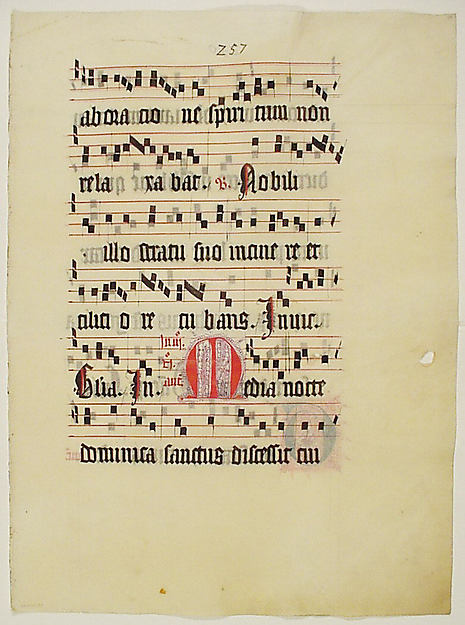 257
ab oratio ne spiritum non
rela xa bat. V. Nobili
illo stratu suo incine re et
cilici o re cu bans. Inuic.
In. Media nocte
dominica sanctus discessit cui